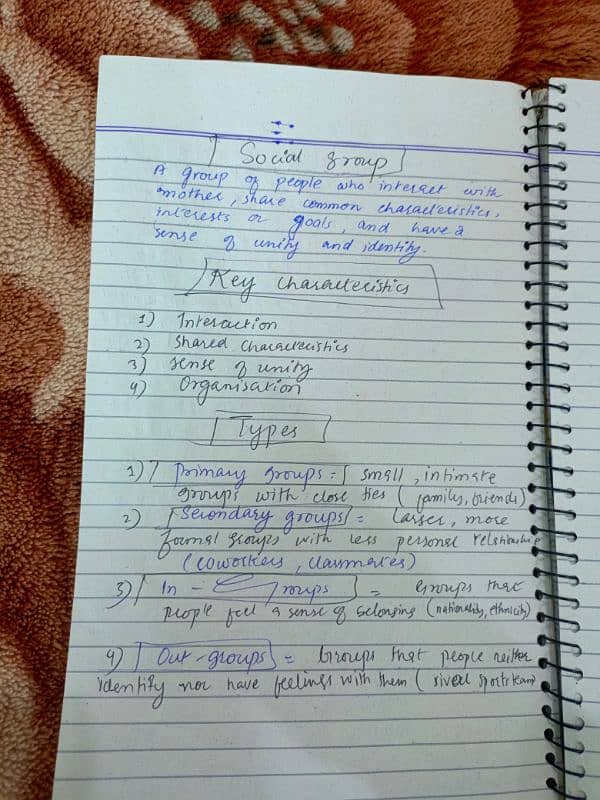 Social group
A group of people who interact with
another, share common characteristics,
interests or goals, and have a
sense of unity and identity.
Key Characteristics
1) Interaction
2) Shared Characteristics
3) Sense of unity
4) Organisation
Types
1) Primary groups = small, intimate
groups with close ties (family, friends)
2) Secondary groups = Larger, more
formal groups with less personal relationship
(coworkers, classmates)
3) In - Groups = Groups that
people feel a sense of belonging (nationality, ethnicity)
4) Out-groups = Groups that people neither
identify nor have feelings with them (rival sports team